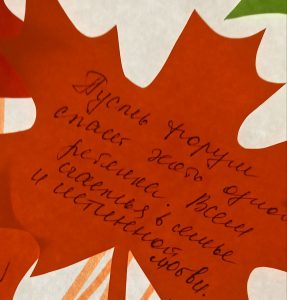 Пусть форум
спасет хоть одного
ребенка. Всем
счастья в семье
и истинной
любви.